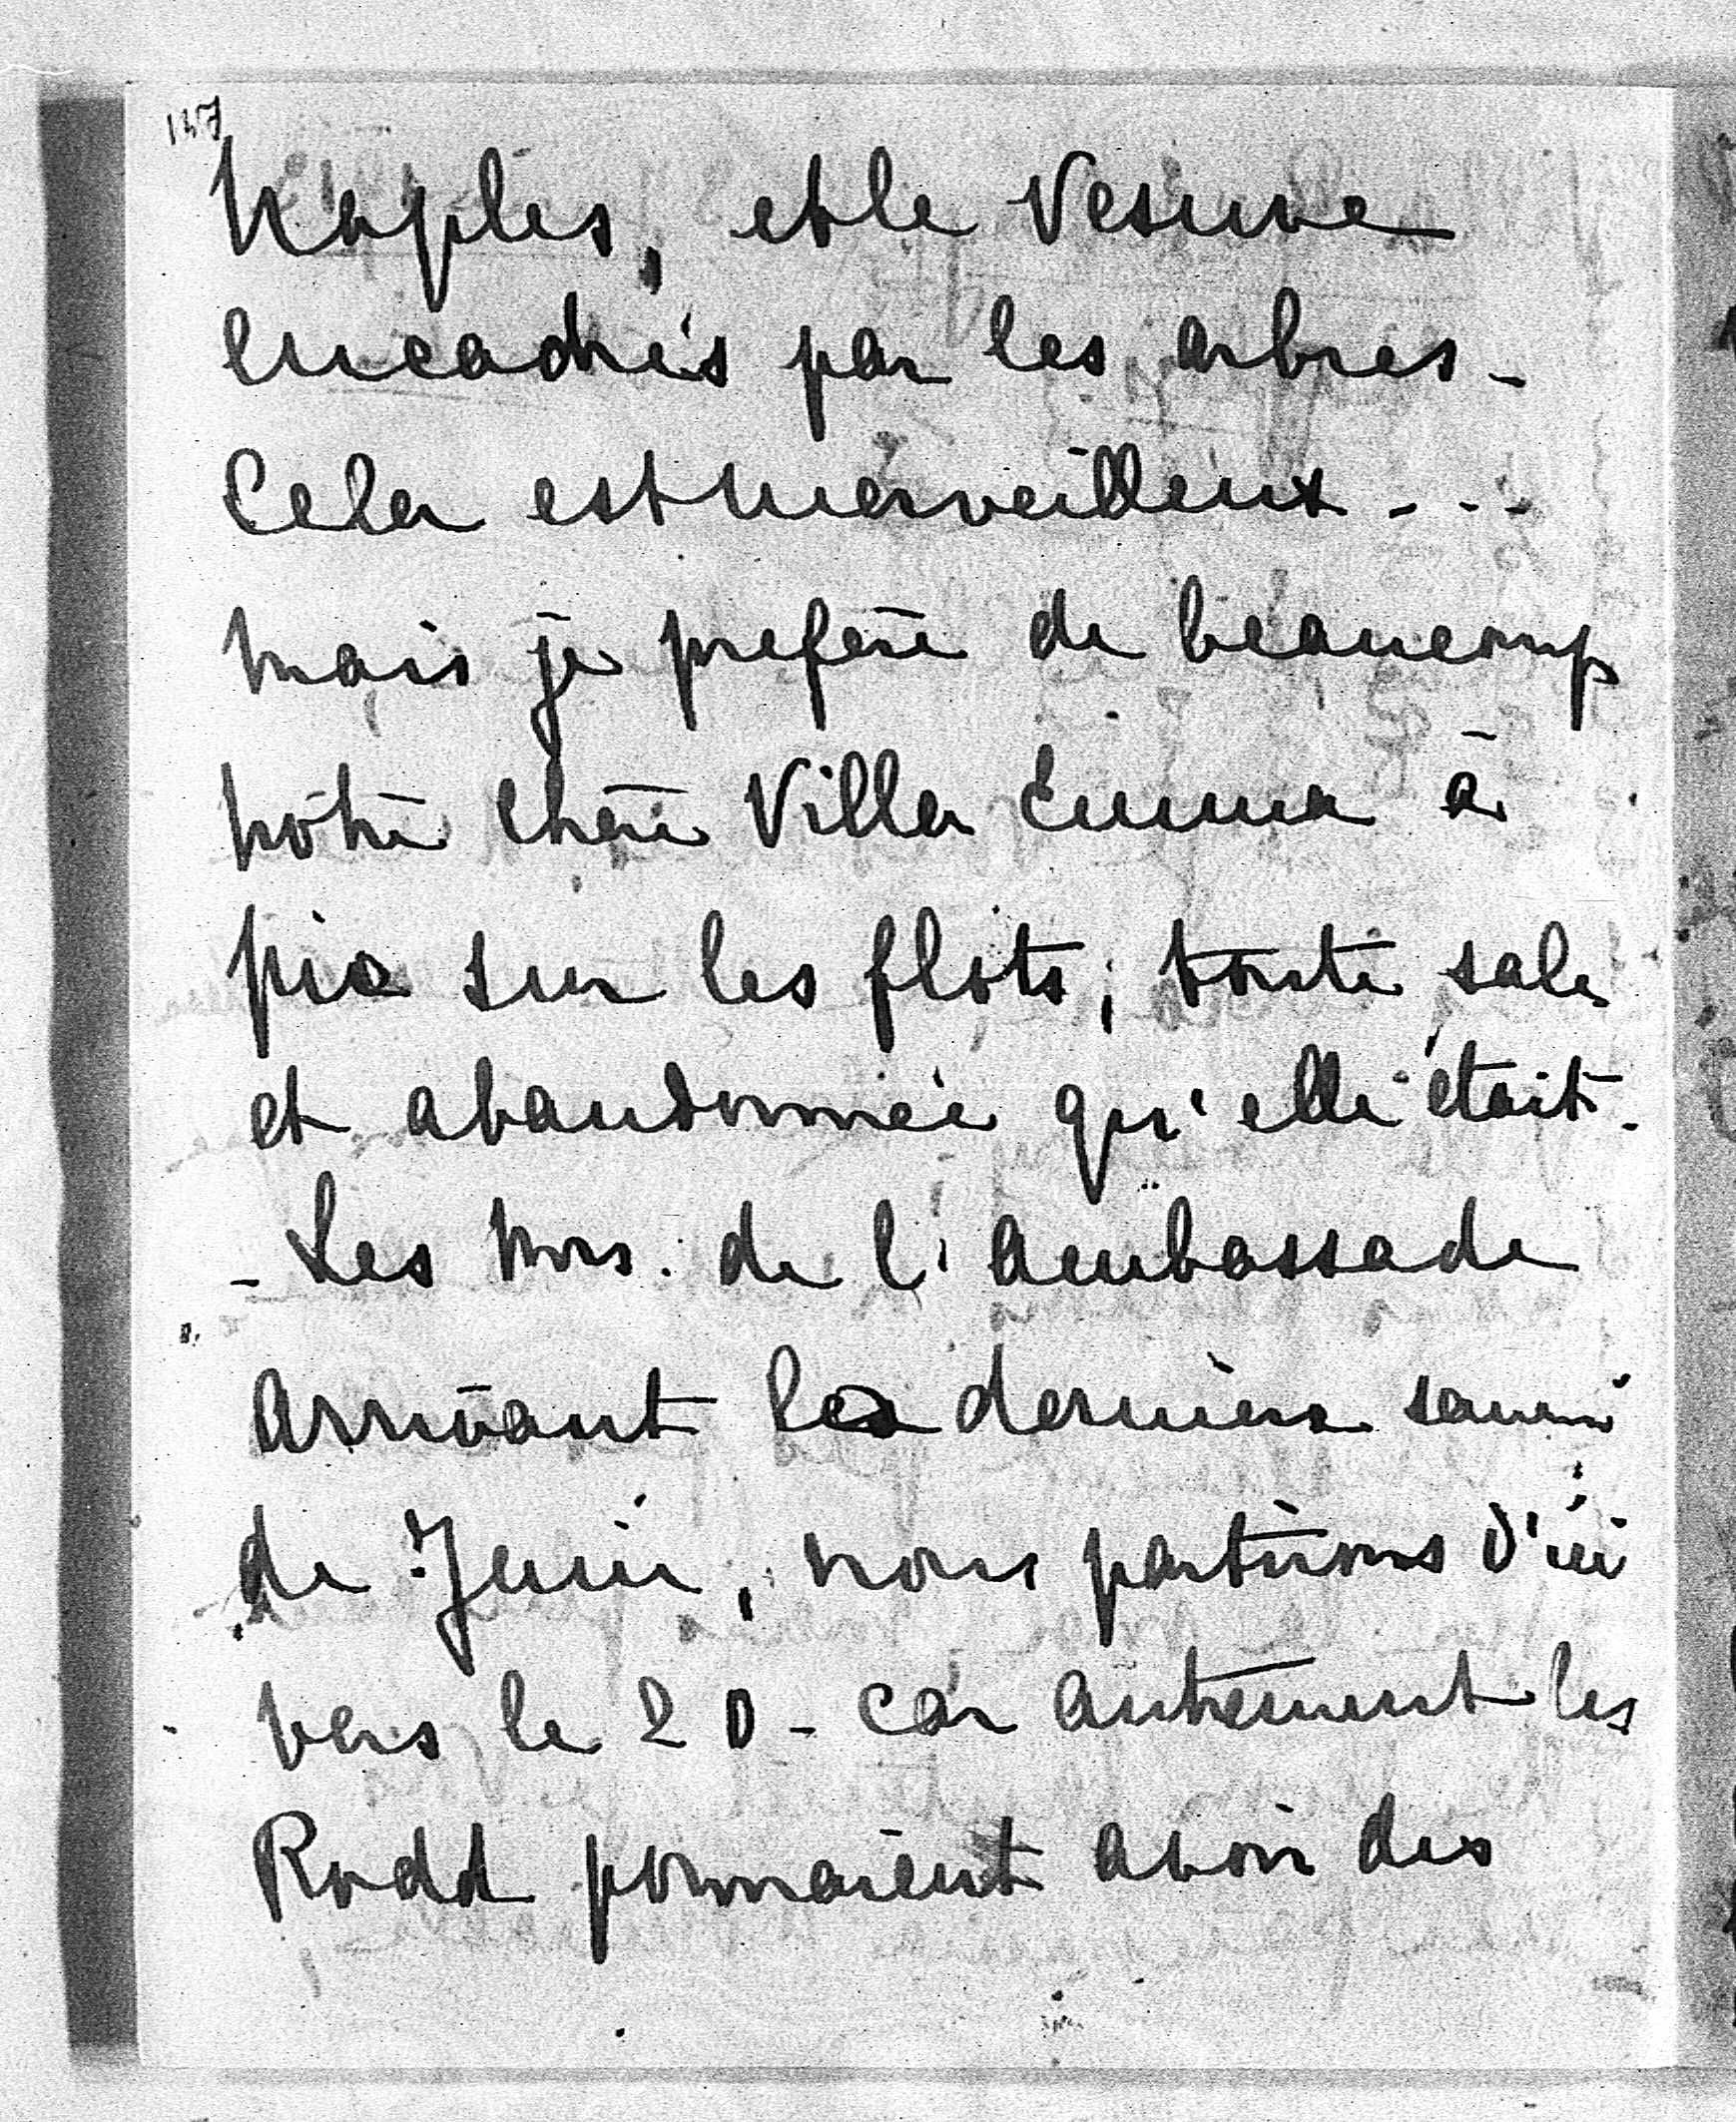 157
Naples, et le Vesuve
encadrés par les arbres -
Cela est merveilleux - - -
mais je prefère de beaucoup
nôtre chère Villa Emma à
pic sur les flots, toute sale
et abandonnée qu'elle était -
- Les Mrs. de l'ambassade
arrivant les derniers samedi
de Juin, nous partirons d'ici
vers le 20 - car autrement les
Rodd pourraient avoir des